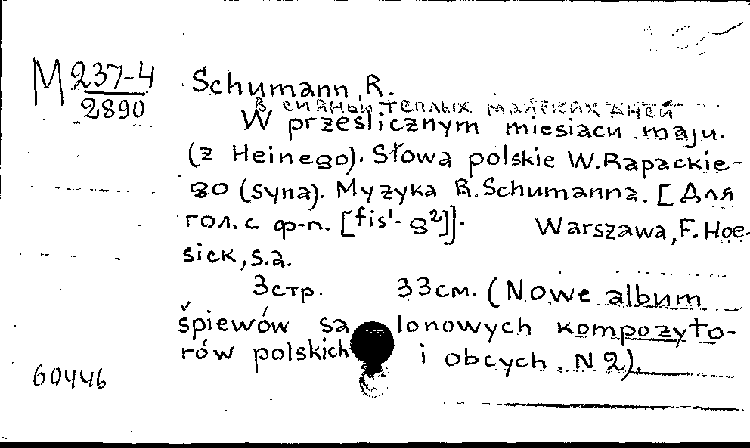 M 237-4
2890
Schumann, R.
В сияньи теплых майских дней
W prześlicznym miesiacu maju.
(z Heinego). Słowa polskie W. Rapackie-
go (syna). Muzyka R. Schumanna. [Для
гол. с ф-п. [fis¹-g²]].  Warszawa, F. Hoe-
sick, s.a.
3стр.  33см. (Nowe album
śpiewów sa lonowych kompozyto-
rów polskich i obcych. N 2).
60446